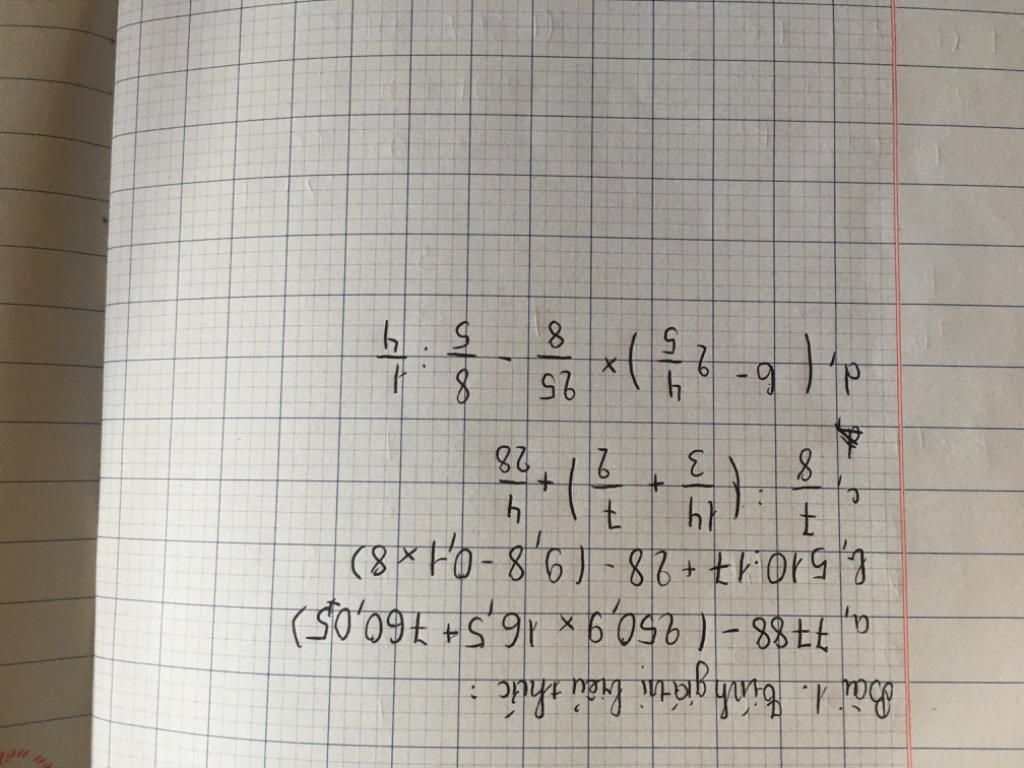 Bài 1. Tính giá trị biểu thức :
a, 7788 - ( 250,9 × 16,5 + 760,05)
b, 510:17 + 28 - (9,8 - 0,1 × 8)
c, 7/8 : ( 14/3 + 7/2 ) + 4/28
d, ( 6 - 2 4/5 ) × 25/8 - 8/5 : 1/4